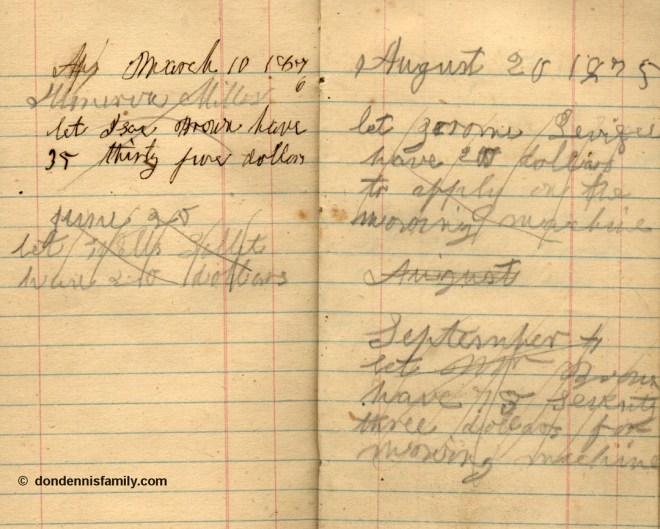 March 10 187
6
Minerva Miller
let Isac Brown have
35 thirty five dollars
june 25
let Wells
have 20 dollars
August 20 1875
let jerome
have 20 dollars
to apply on the
mowing machine
August
September 4
let Mr Brown
have 73 seventy
three dollars for
mowing machine
© dondennisfamily.com